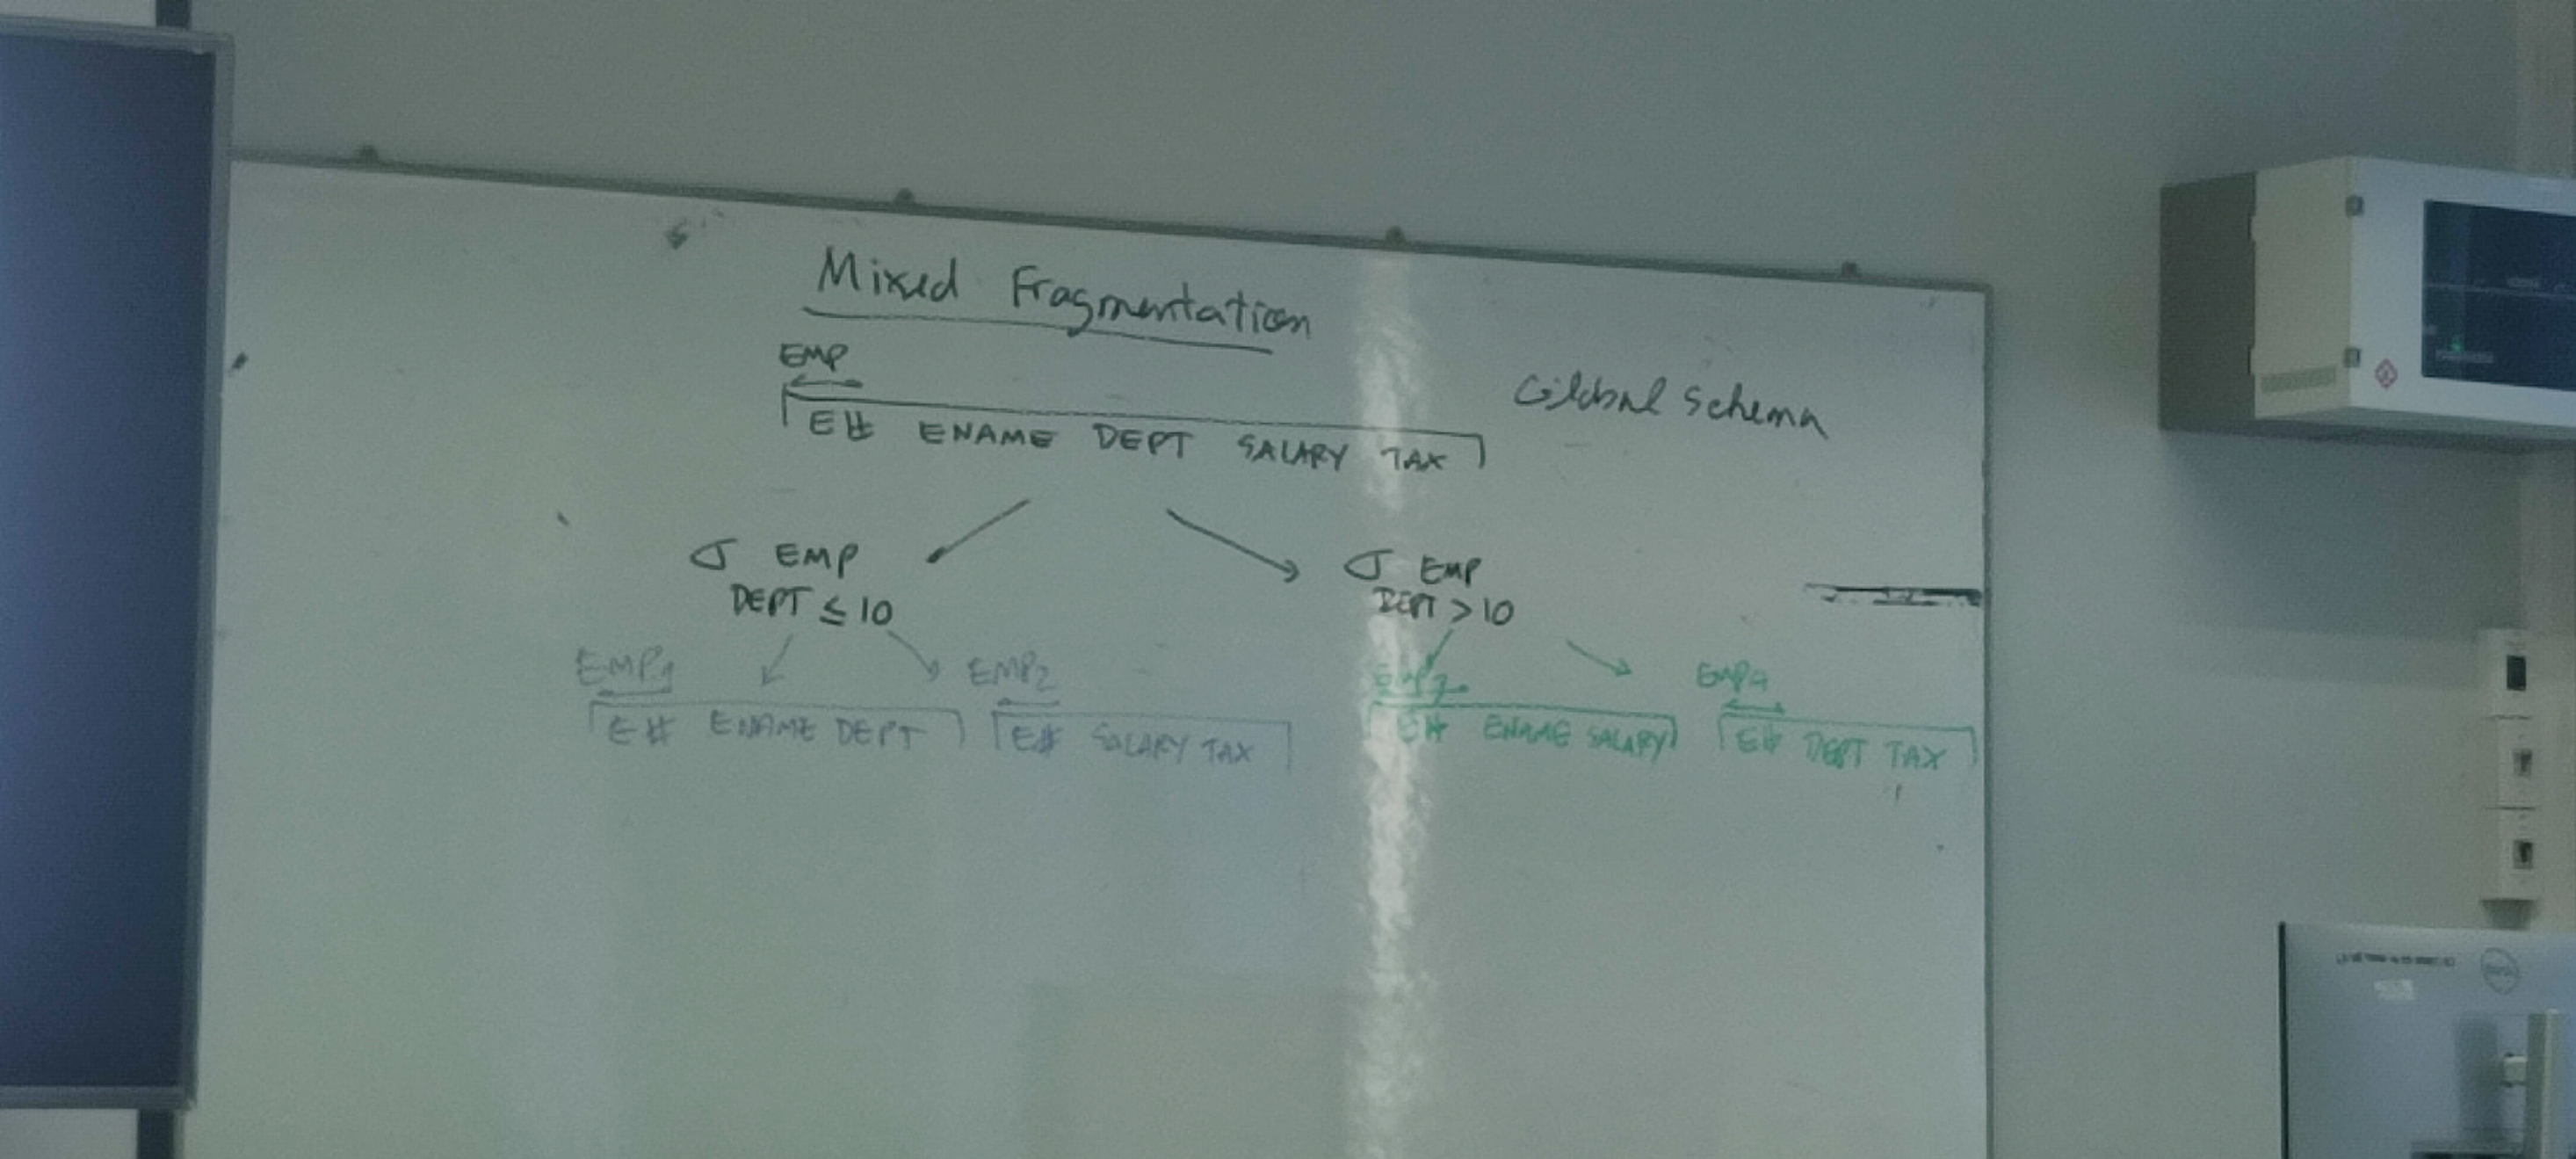 Mixed Fragmentation
EMP
E# ENAME DEPT SALARY TAX
Global Schema
σ EMP
DEPT ≤ 10
σ EMP
DEPT > 10
EMP1
E# ENAME DEPT
EMP2
E# SALARY TAX
EMP3
E# ENAME SALARY
EMP4
E# DEPT TAX